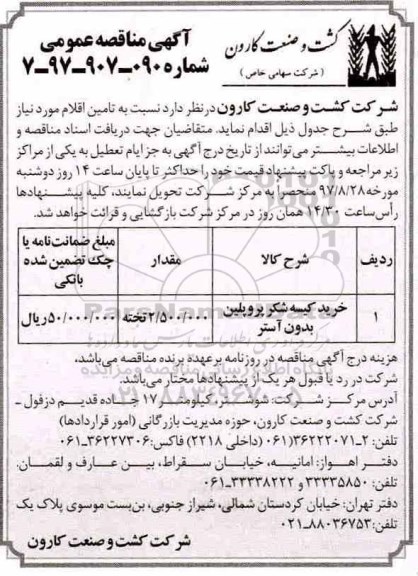 کشت و صنعت کارون
( شرکت سهامی خاص )
آگهی مناقصه عمومی
شماره ۰۹۰-۹۰۷-۹۷-۷
شرکت کشت و صنعت کارون در نظر دارد نسبت به تامین اقلام مورد نیاز
طبق شرح جدول ذیل اقدام نماید. متقاضیان جهت دریافت اسناد مناقصه و
اطلاعات بیشتر می‌توانند از تاریخ درج آگهی به جز ایام تعطیل به یکی از مراکز
زیر مراجعه و پاکت پیشنهاد قیمت خود را حداکثر تا پایان ساعت ۱۴ روز دوشنبه
مورخه ۹۷/۸/۲۸ منحصراً به مرکز شرکت تحویل نمایند، کلیه پیشنهادها
رأس ساعت ۱۴/۳۰ همان روز در مرکز شرکت بازگشایی و قرائت خواهد شد.
ردیف شرح کالا مقدار مبلغ ضمانت‌نامه یا چک تضمین شده بانکی
۱ خرید کیسه شکر پروپلین بدون آستر ۲/۵۰۰/۰۰۰ تخته ۵۰/۰۰۰/۰۰۰ ریال
هزینه درج آگهی مناقصه در روزنامه بر عهده برنده مناقصه می‌باشد،
شرکت در رد یا قبول هر یک از پیشنهادها مختار می‌باشد.
آدرس مرکز شرکت: شوشتر، کیلومتر ۱۷ جاده قدیم دزفول -
شرکت کشت و صنعت کارون، حوزه مدیریت بازرگانی (امور قراردادها)
تلفن: ۲-۳۶۲۲۲۰۷۱(۰۶۱) (داخلی ۲۲۱۸) فاکس: ۳۶۲۲۷۳۰۶-۰۶۱
دفتر اهواز: امانیه، خیابان سقراط، بین عارف و لقمان.
تلفن: ۳۳۳۳۵۸۵۰ و ۳۳۳۳۸۲۲۲-۰۶۱
دفتر تهران: خیابان کردستان شمالی، شیراز جنوبی، بن‌بست موسوی پلاک یک
تلفن: ۸۸۰۳۶۷۵۳-۰۲۱
شرکت کشت و صنعت کارون